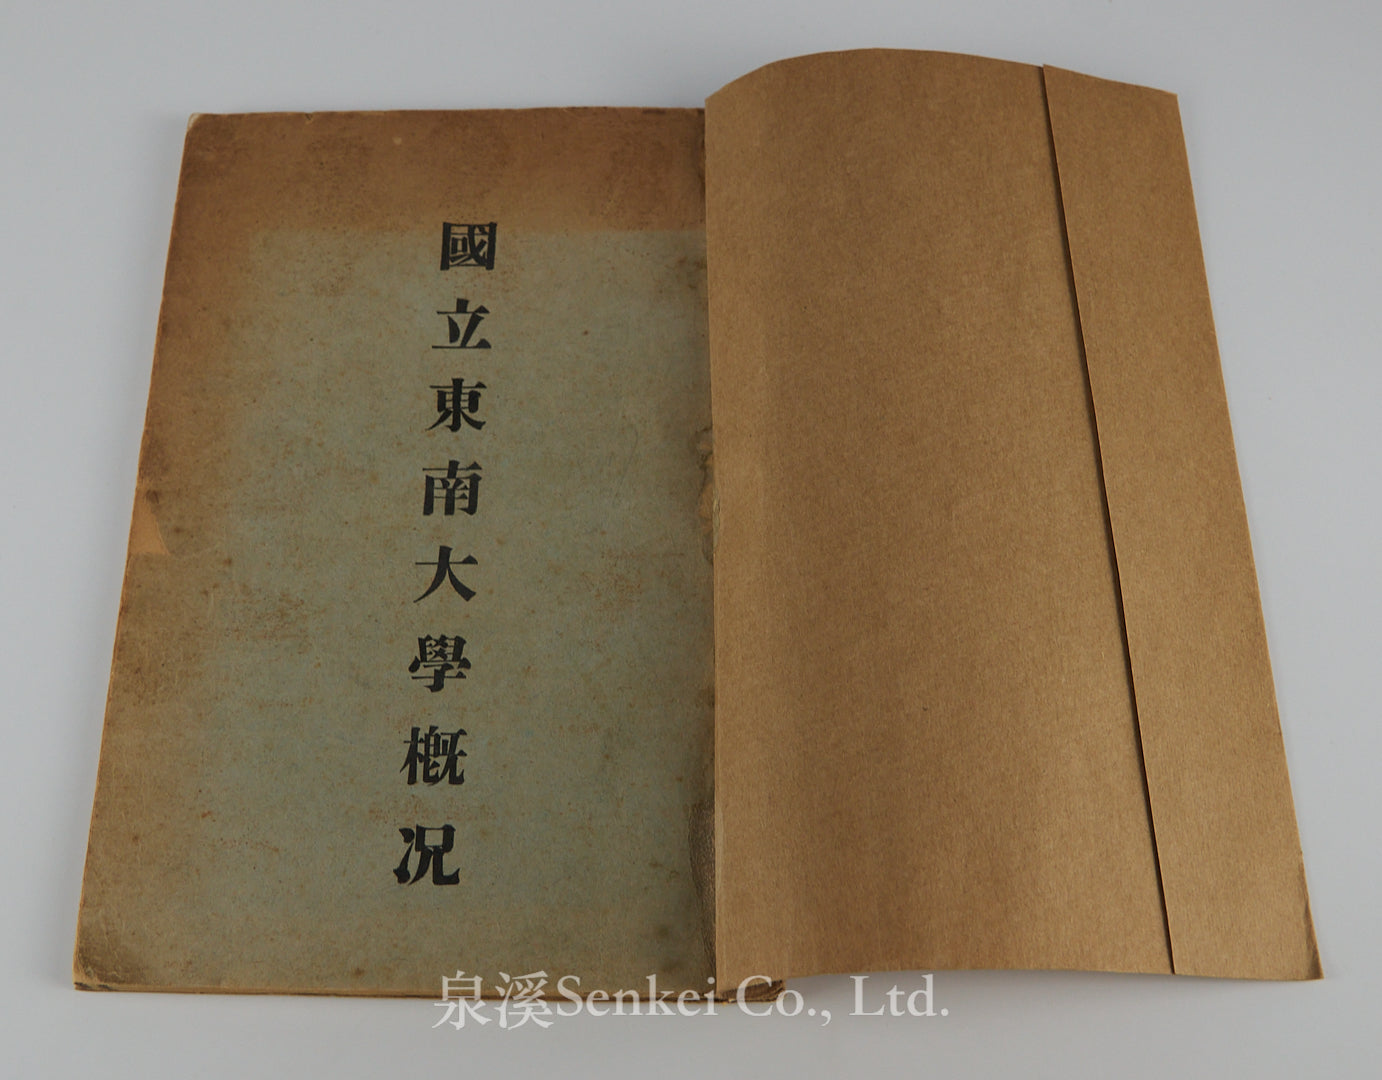 國立東南大學概况
泉溪Senkei Co., Ltd.